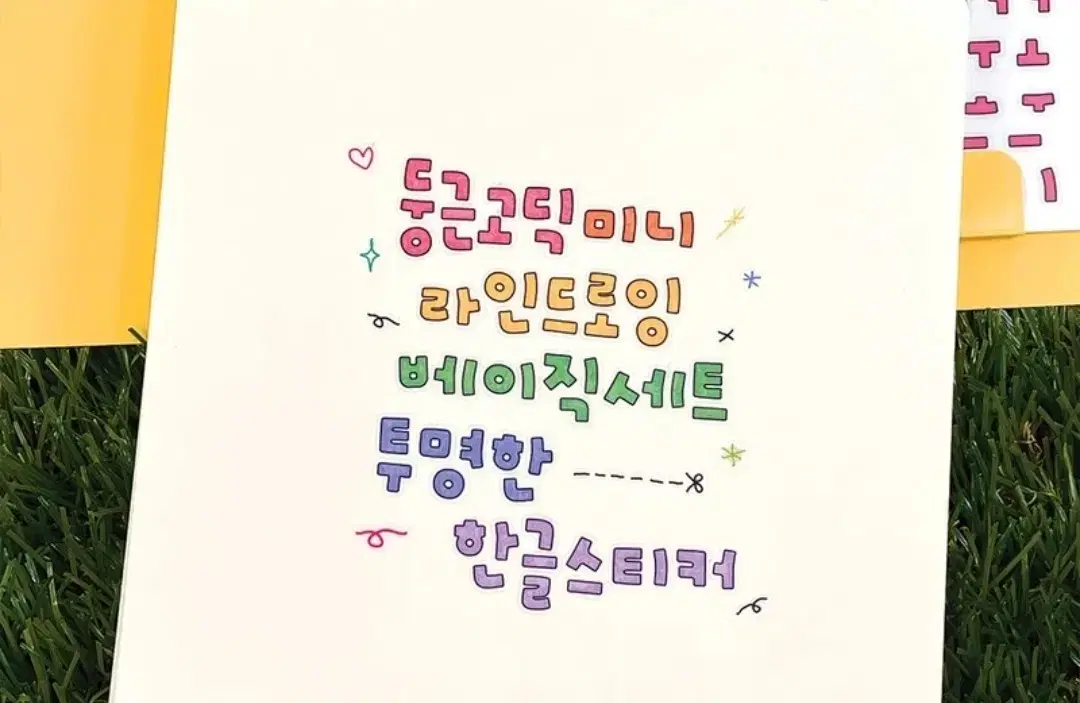 둥근고딕미니
라인드로잉
베이직세트
투명한
한글스티커
ㅜㅗ
ㅗㅜ
ㅡㅡ
ㅣ